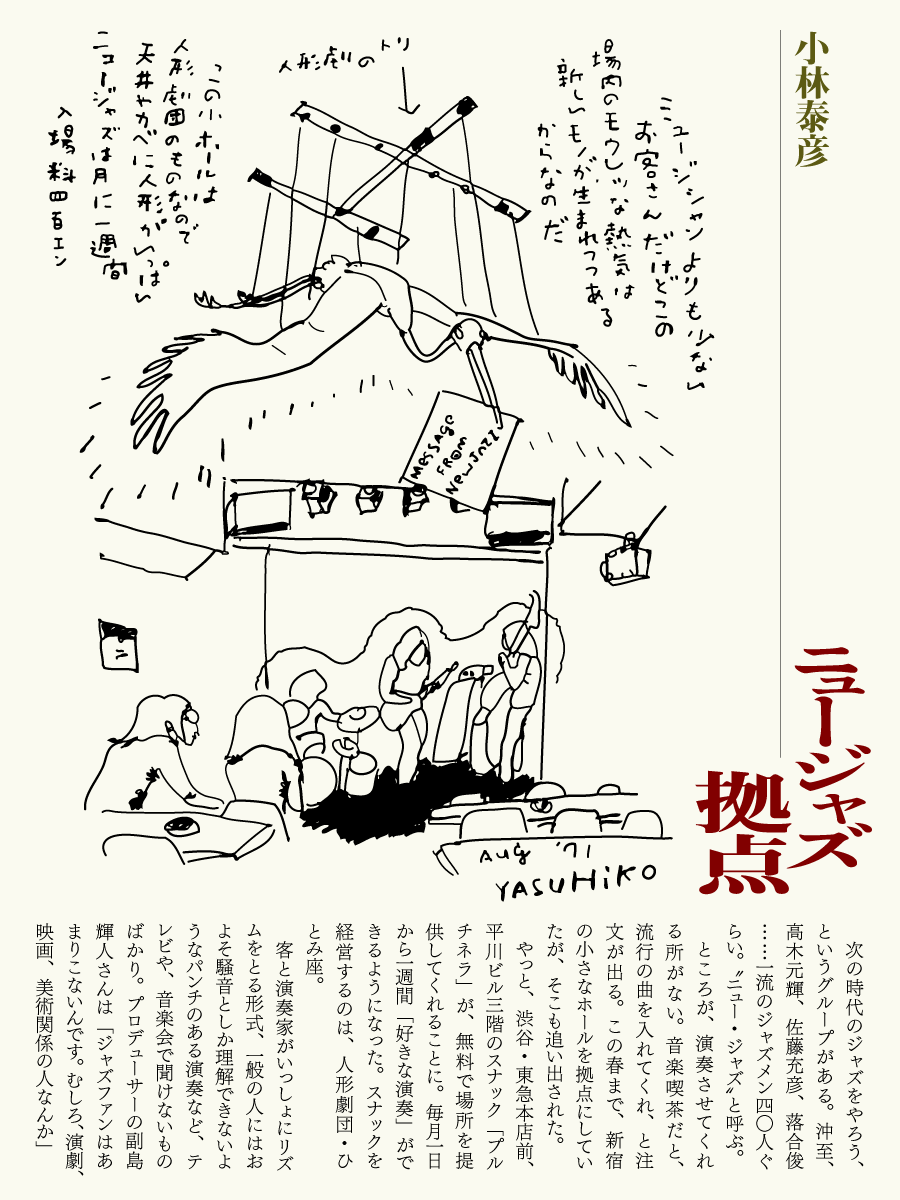 小林泰彦
ニュージャズ
拠点
ミュージシャンよりも少ない
お客さんだけどこの
場内のモウレツな熱気は
新しいモノが生まれつつある
からなのだ
人形劇のトリ
この小ホールは
人形劇団のものなので
天井やカベに人形がいっぱい。
ニュージャズは月に一週間
入場料四百エン
MESSAGE
FROM
NEWJAZZ
AUG '71
YASUHiKO
次の時代のジャズをやろう、
というグループがある。沖至、
高木元輝、佐藤充彦、落合俊
……一流のジャズメン四〇人ぐ
らい。〝ニュー・ジャズ〟と呼ぶ。
ところが、演奏させてくれ
る所がない。音楽喫茶だと、
流行の曲を入れてくれ、と注
文が出る。この春まで、新宿
の小さなホールを拠点にしてい
たが、そこも追い出された。
やっと、渋谷・東急本店前、
平川ビル三階のスナック「プル
チネラ」が、無料で場所を提
供してくれることに。毎月一日
から一週間「好きな演奏」がで
きるようになった。スナックを
経営するのは、人形劇団・ひ
とみ座。
客と演奏家がいっしょにリズ
ムをとる形式、一般の人にはお
よそ騒音としか理解できないよ
うなパンチのある演奏など、テ
レビや、音楽会で聞けないもの
ばかり。プロデューサーの副島
輝人さんは「ジャズファンはあ
まりこないんです。むしろ、演劇、
映画、美術関係の人なんか」